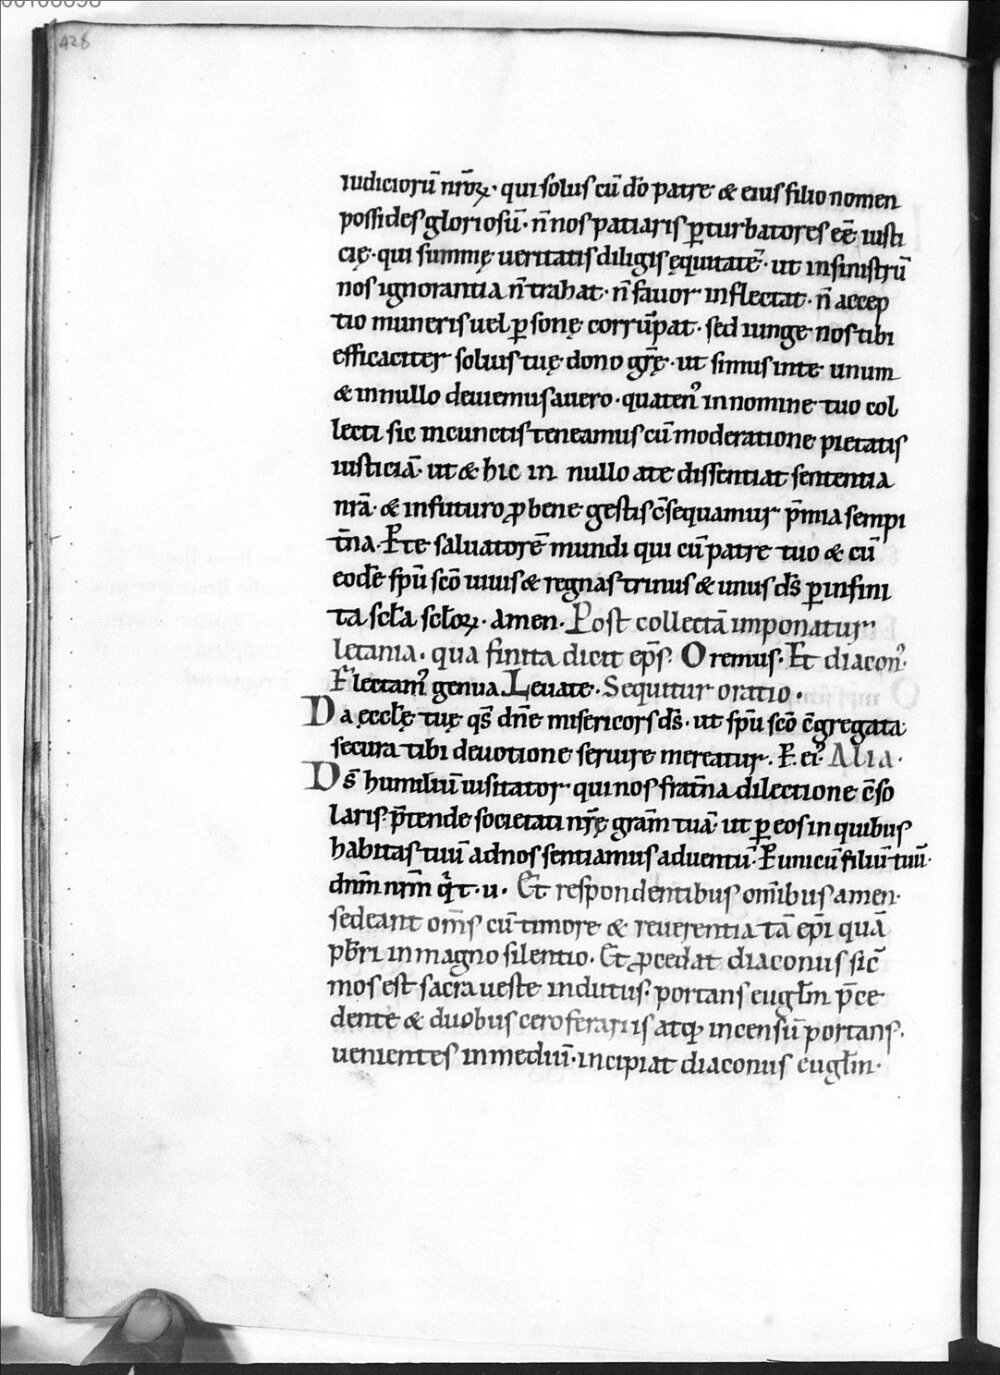 428
iudiciorū nr̄oꝝ· qui solus cū dō patre & eius filio nomen
possides gloriosū· n̄ nos patiaris ꝑturbatores eē iusti
cię· qui summę ueritatis diligis ęquitatē· ut in sinistrū
nos ignorantia n̄ trahat· n̄ fauor inflectat· n̄ accep
tio muneris uel ꝑsonę corrūpat· sed iunge nos tibi
efficaciter solius tuę dono gr̄ę· ut simus in te unum
& in nullo deuiemus a uero· quatenꝰ in nomine tuo col
lecti sic in cunctis teneamus cū moderatione pietatis
iusticiā· ut & hic in nullo a te dissentiat sententia
nr̄a· & in futuro ꝓ bene gestis c̄sequamur p̄mia sempi
t̄na. P̄ te saluatorē mundi qui cū patre tuo & cū
eodē sp̄u sc̄o uiuis & regnas trinus & unus ds̄ ꝑ infini
ta scl̄a scl̄oꝝ· amen. Post collectā imponatur
letania. qua finita dicit ep̄s. Oremus. Et diaconꝰ.
F̄lectamꝰ genua. Leuate. Sequitur oratio.
Da ęccl̄ę tuę qs̄ dn̄e misericors ds̄· ut sp̄u sc̄o c̄gregata
secura tibi deuotione seruire mereatur. P̄. eiꝰ Alia.
Ds̄ humiliū uisitator qui nos frat̄na dilectione c̄so
laris· p̄tende societati nr̄ę grām tuā· ut ꝑ eos in quibus
habitas tuū ad nos sentiamus aduentū· P̄ unicū filiū tuū·
dnm̄ nrm̄ q̄i t. u. Et respondentibus om̄ibus amen·
sedeant om̄s cū timore & reuerentia tā ep̄i quā
pb̄ri in magno silentio. Et ꝓcedat diaconus sic̄
mos est sacra ueste indutus· portans eugl̄m p̄ce
dente & duobus ceroferariis atqꝫ incensū portans.
uenientes in mediū· incipiat diaconus eugl̄m·